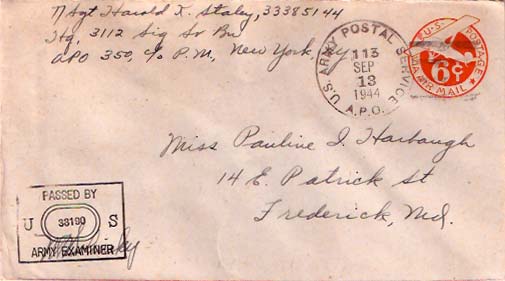 T/Sgt Harold K. Staley, 33385144
Hq, 3112 Sig Sv Bn
APO 350, c/o P.M., New York, Ny.
U.S. ARMY POSTAL SERVICE
113
SEP
13
1944
A.P.O.
U.S. POSTAGE
6¢
VIA AIR MAIL
Miss Pauline I. Harbaugh
14 E. Patrick St
Frederick, Md.
PASSED BY
U 33190 S
ARMY EXAMINER